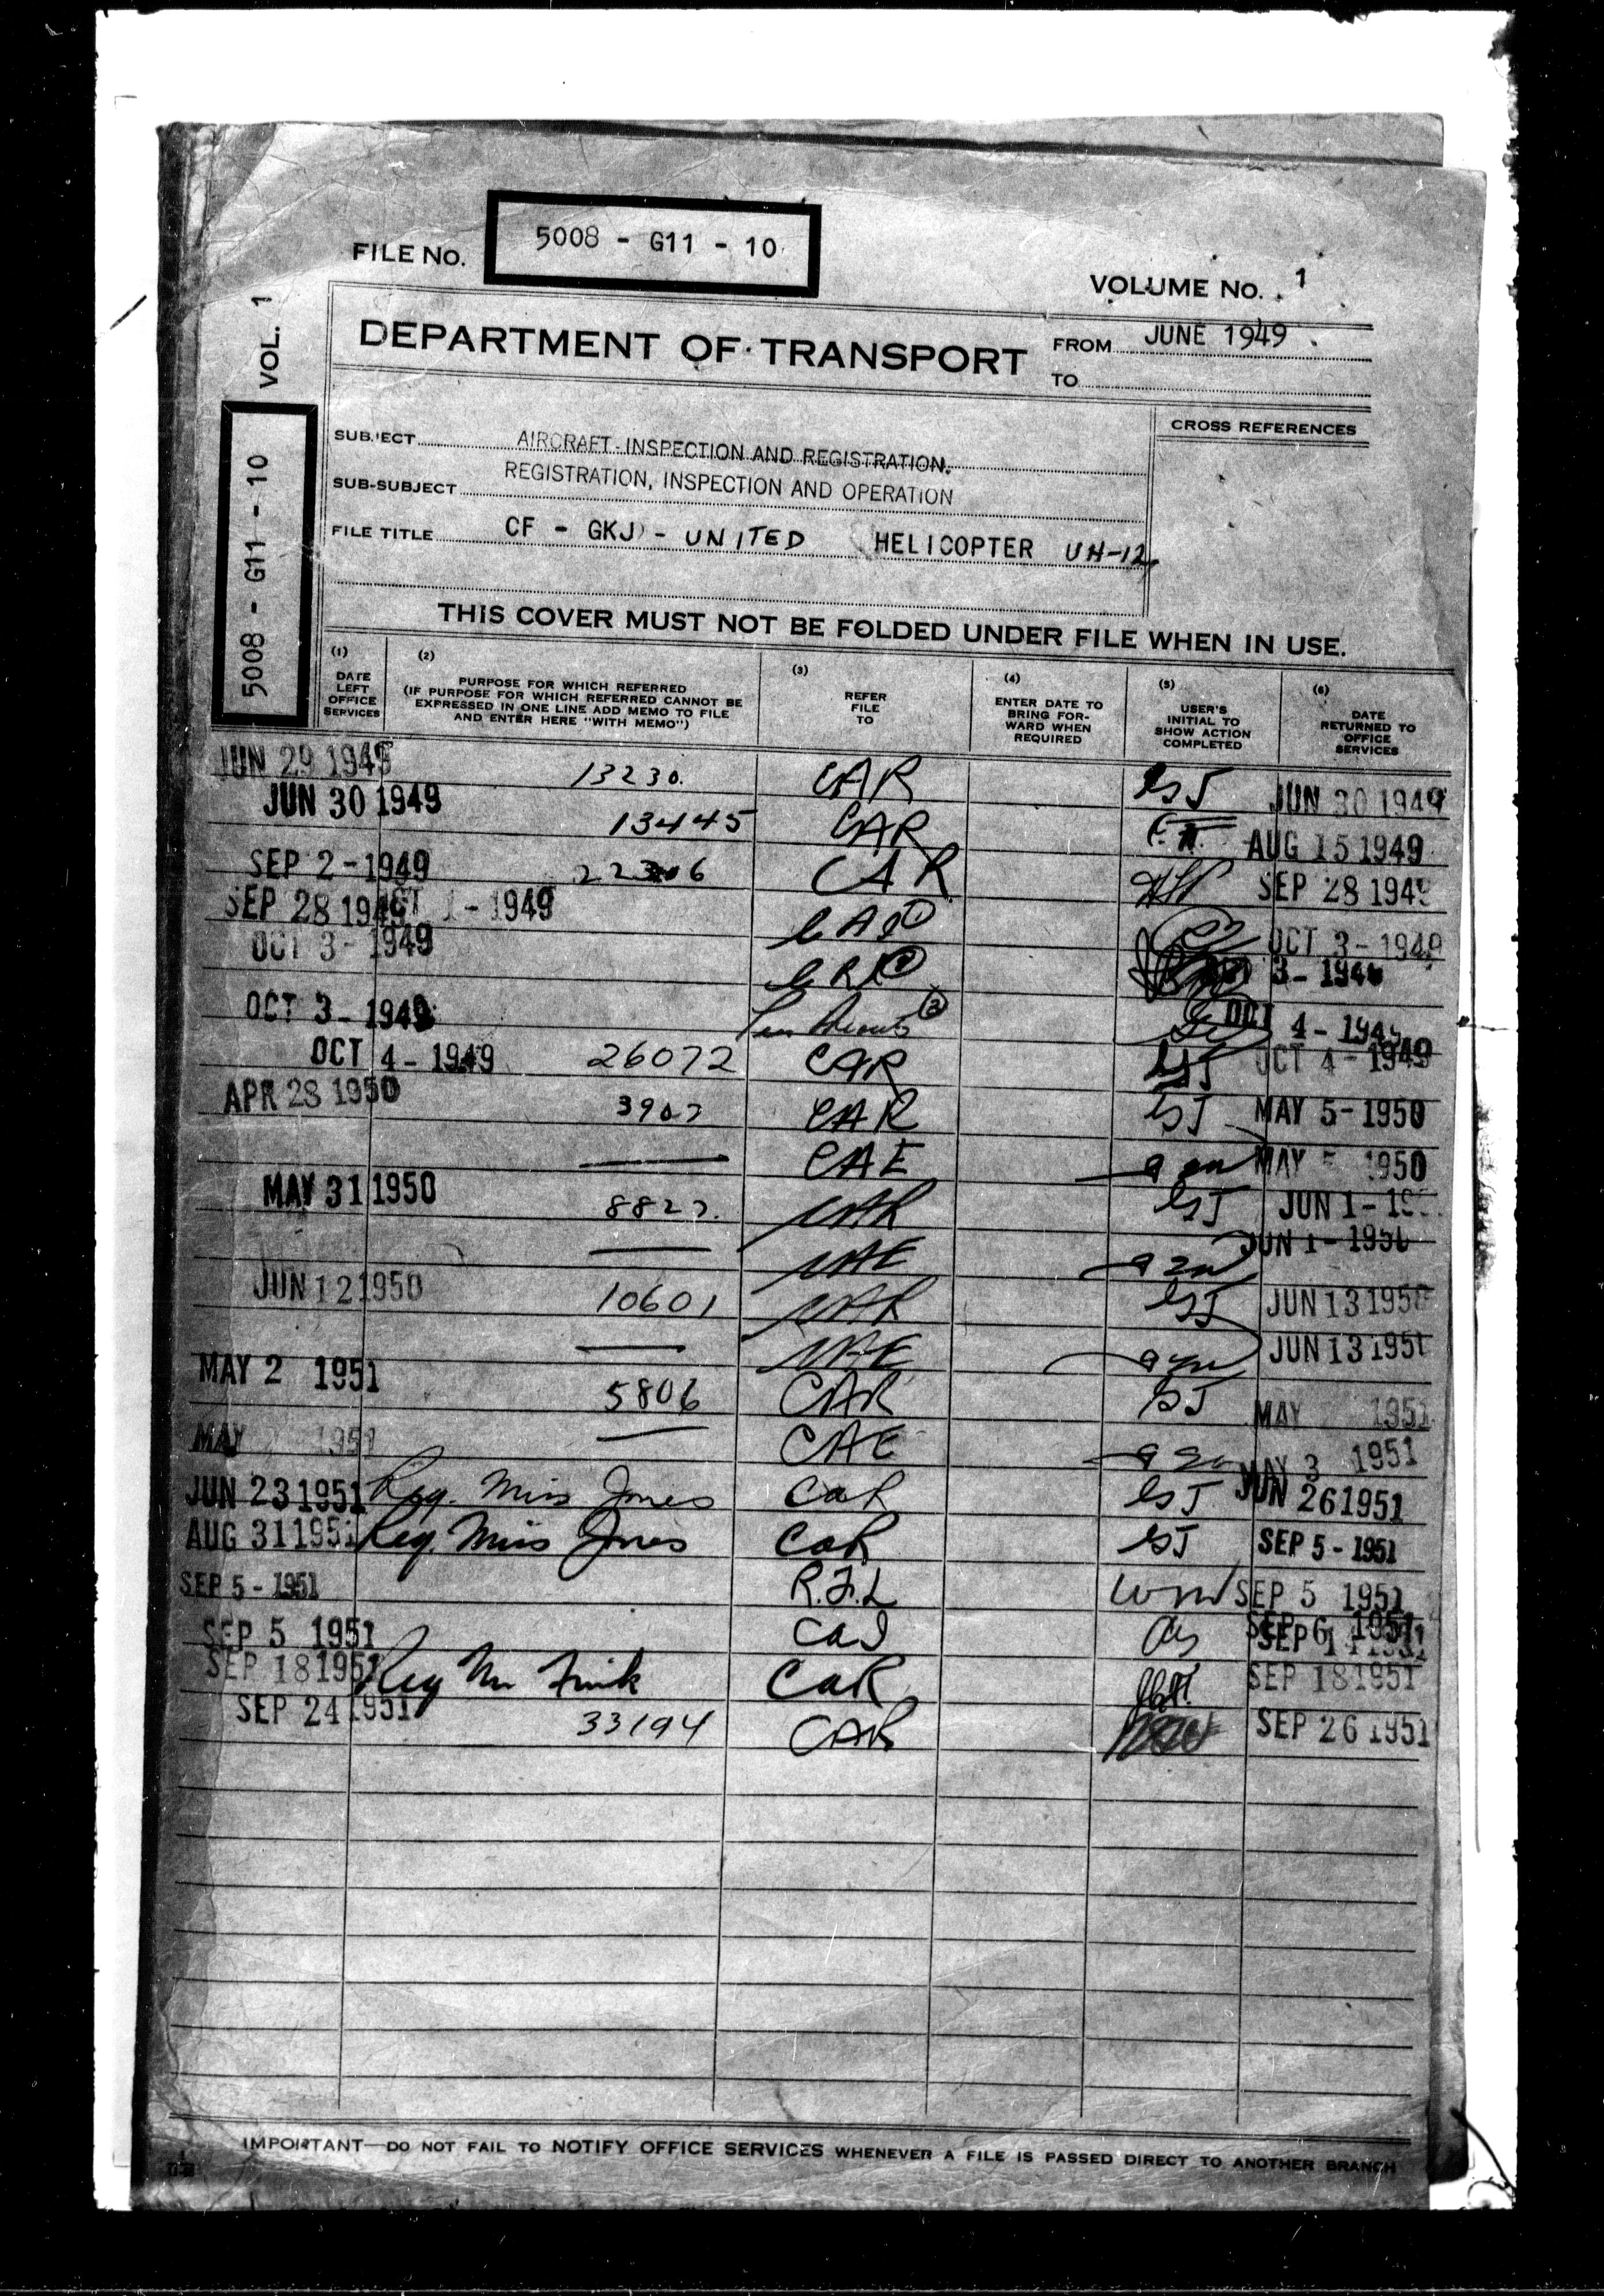 FILE NO. 5008 - G11 - 10
VOLUME NO. 1
VOL. 1
5008 - G11 - 10
DEPARTMENT OF TRANSPORT
FROM JUNE 1949
TO
CROSS REFERENCES
SUBJECT AIRCRAFT-INSPECTION AND REGISTRATION.
SUB-SUBJECT REGISTRATION, INSPECTION AND OPERATION
FILE TITLE CF - GKJ - UNITED HELICOPTER UH-12
THIS COVER MUST NOT BE FOLDED UNDER FILE WHEN IN USE.
(1) DATE LEFT OFFICE SERVICES
(2) PURPOSE FOR WHICH REFERRED (IF PURPOSE FOR WHICH REFERRED CANNOT BE EXPRESSED IN ONE LINE ADD MEMO TO FILE AND ENTER HERE "WITH MEMO")
(3) REFER FILE TO
(4) ENTER DATE TO BRING FORWARD WHEN REQUIRED
(5) USER'S INITIAL TO SHOW ACTION COMPLETED
(6) DATE RETURNED TO OFFICE SERVICES
JUN 29 1949 13230. CAR GSJ JUN 30 1949
JUN 30 1949 13445 CAR AUG 15 1949
SEP 2 - 1949 CAR SEP 28 1949
SEP 28 1949 OCT 1 - 1949 OCT 3 - 1949
OCT 3 - 1949 3 - 1949
OCT 3 - 1949 OCT 4 - 1949
OCT 4 - 1949 26072 CAR GSJ OCT 4 - 1949
APR 28 1950 3907 CAR GSJ MAY 5 - 1950
CAE MAY 5 1950
MAY 31 1950 8827. CAR GSJ JUN 1 -
CAE JUN 1 - 1950
JUN 12 1950 10601 CAR GSJ JUN 13 1950
CAE JUN 13 1950
MAY 2 1951 5806 CAR GSJ MAY 1951
MAY 1951 CAE MAY 3 1951
JUN 23 1951 Req. Miss Jones CAR GSJ JUN 26 1951
AUG 31 1951 Req. Miss Jones CAR GSJ SEP 5 - 1951
SEP 5 - 1951 R.F.L SEP 5 1951
SEP 5 1951 CAI SEP 6 1951
SEP 18 1951 Req Mr CAR SEP 18 1951
SEP 24 1951 33194 CAR SEP 26 1951
IMPORTANT—DO NOT FAIL TO NOTIFY OFFICE SERVICES WHENEVER A FILE IS PASSED DIRECT TO ANOTHER BRANCH